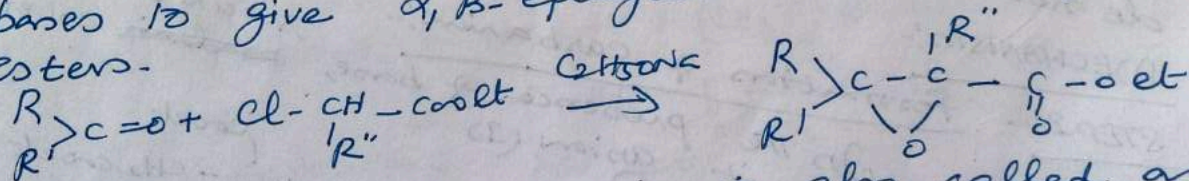 bases to give α, β-
esters.
R R' >C=O + Cl-CH-COOEt C2H5ONa → R R' >C - C - C - O et
R'' R'' O O
is also called a